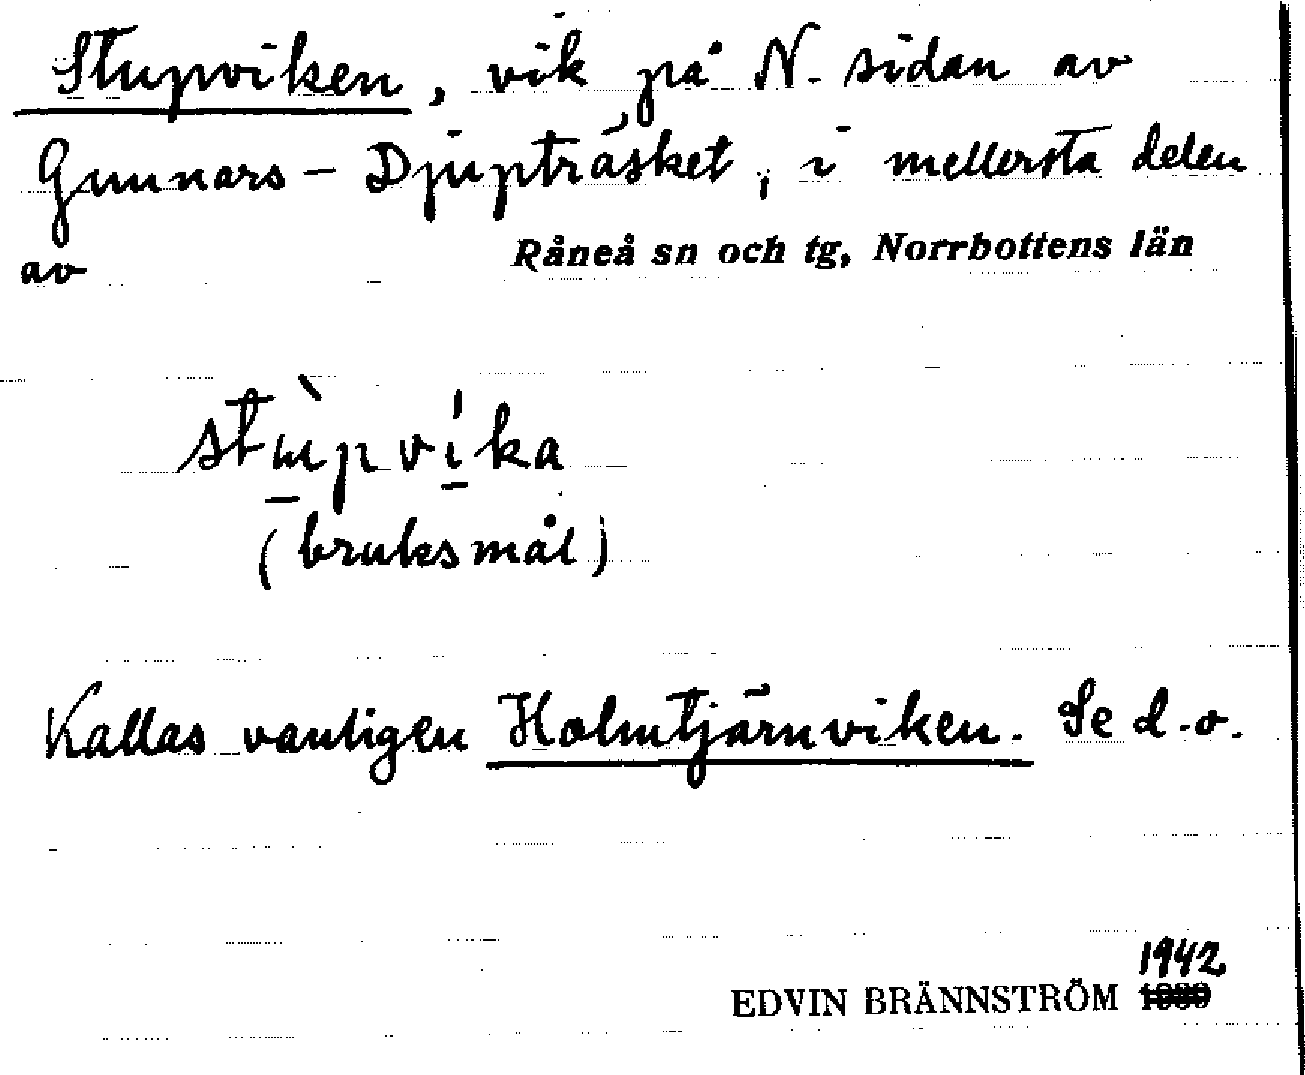 Stupviken, vik på N. sidan av
Gunnars-Djupträsket, i mellersta delen
av Råneå sn och tg, Norrbottens län
stùpvíka
(bruksmål)
Kallas vanligen Holmtjärnviken. Se d.o.
1942
EDVIN BRÄNNSTRÖM